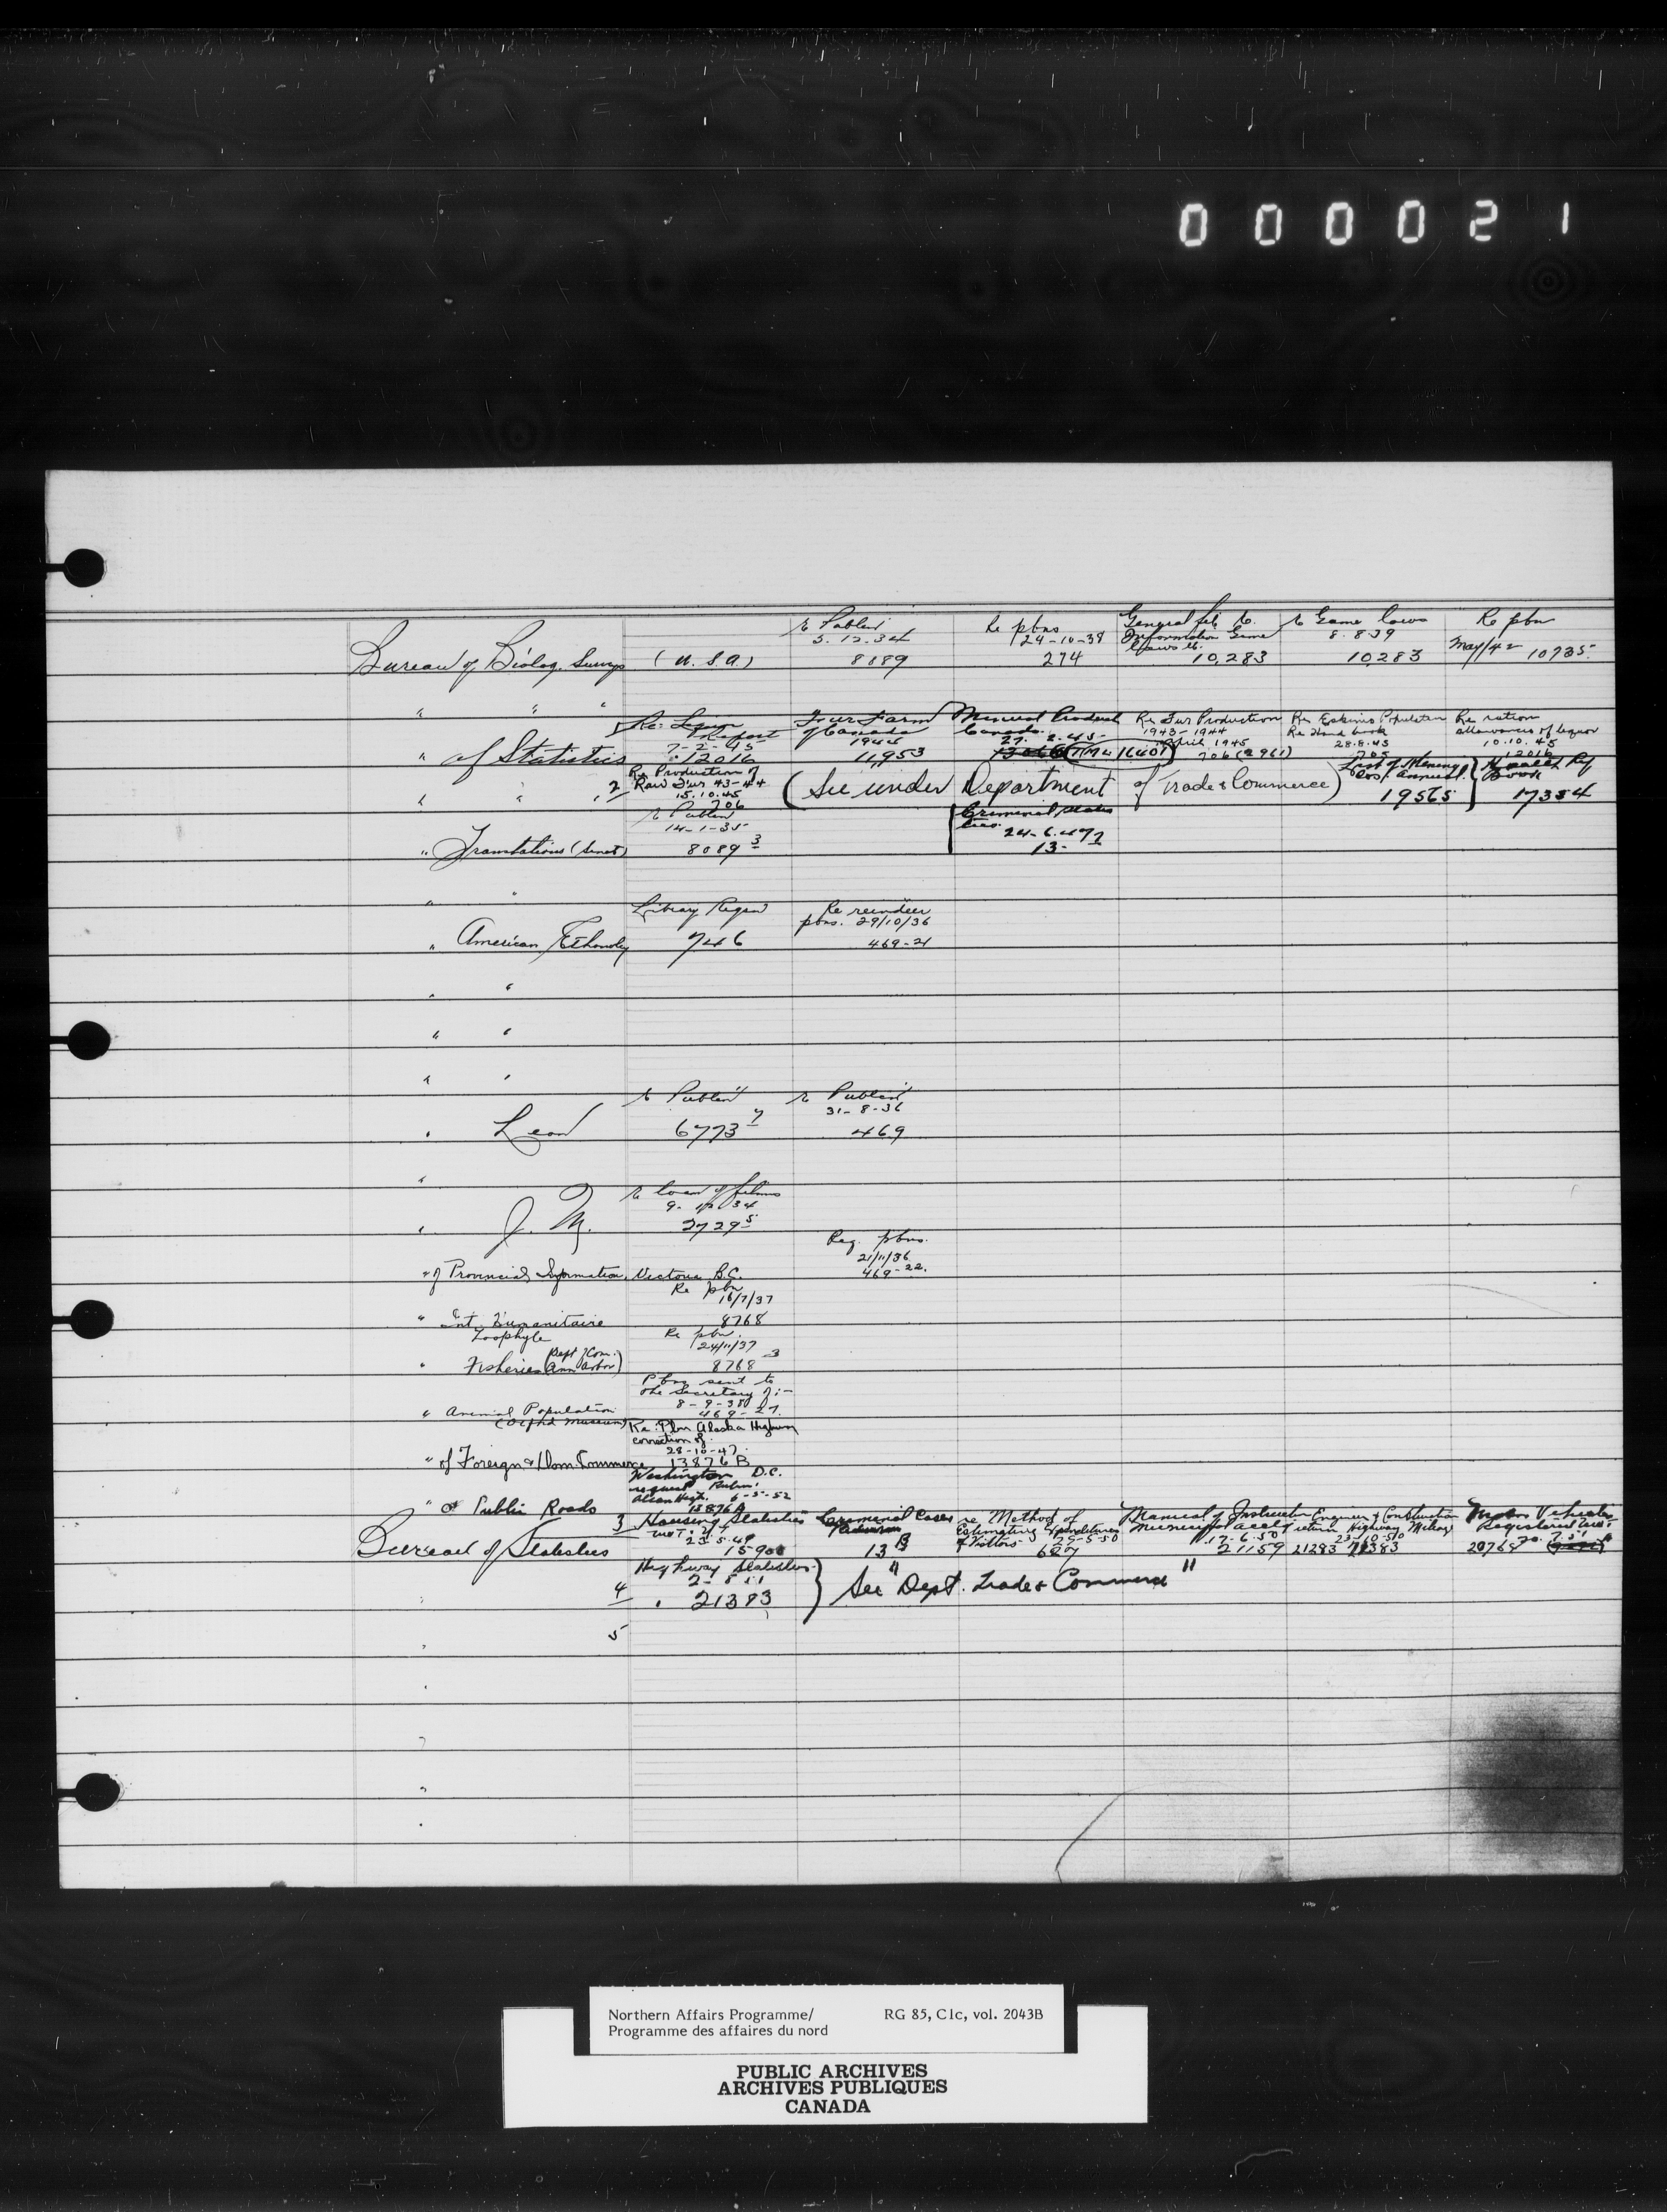 000021
re Publicn 5.12.34 Re pbns 24-10-38 General file re Information Game Laws etc. re Game laws 8.8.39 Re pbn
Bureau of Biolog. Survey (U.S.A.) 8089 274 10,283 10,283 May/42 10735
" " "
Re: Liquor Report 7-2-45 Fur Farm of Canada 1944 Mineral Product Canada 27.2.45- Re Fur Production 1943-1944 April 1945 Re Eskimo Population Re Hand book 28.8.45 Re ration allowances of liquor 10.10.45
" of Statistics 12016 11,953 706 (2961) 705 12016
Re Production of Raw Fur 43-44 15.10.45 List of Mining Cos. Annual. Health Ref Book
" " 2 706 (See under Department of Trade & Commerce) 19565 17354
re Publicn 14-1-35 Criminal Statistics 24-6.47
" Translations (Senate) 8089 3 13-
" "
Library Regen Re reindeer pbns. 29/10/36
" American Ethnoly 746 469-21
" "
" "
" "
re Publicn re Publicn 31-8-36
" 6773 7 469
"
re loan of films 9. 34
" J. M. 2729 5
Reg. pbns. 21/11/36
" of Provincial Information, Victoria B.C. 469-22.
Re pbn 16/7/37
" Int. Humanitaire Zoophyle 8768
Re pbn. 24/11/37
" Fisheries (Dept of Com. Ann Arbor) 8768 3
Pbn sent to the Secretary of:- 8-9-38
" Animal Population (Oxford Museum) 469-27.
Re: Pbn Alaska Highway correction of. 28-10-47.
" of Foreign & Dom. Commerce 13876 B
Washington D.C. request Alcan High. 6-5-52
" of Public Roads 13876A
3 Housing Statistics 25.5.49 Criminal Cases re Method of Estimating Expenditures of Visitors 25-5-50 Manual of Instruction Municipal acct 17.6.50 Engineer & Construction return Highway Mileage 23-10-50 Motor Vehicles Registered
Bureau of Statistics 15900 13 B 6207 21159 21283 21383 20768
Highway Statistics
4 21383 } See "Dept. Trade & Commerce"
5
Northern Affairs Programme/ RG 85, C1c, vol. 2043B
Programme des affaires du nord
PUBLIC ARCHIVES
ARCHIVES PUBLIQUES
CANADA